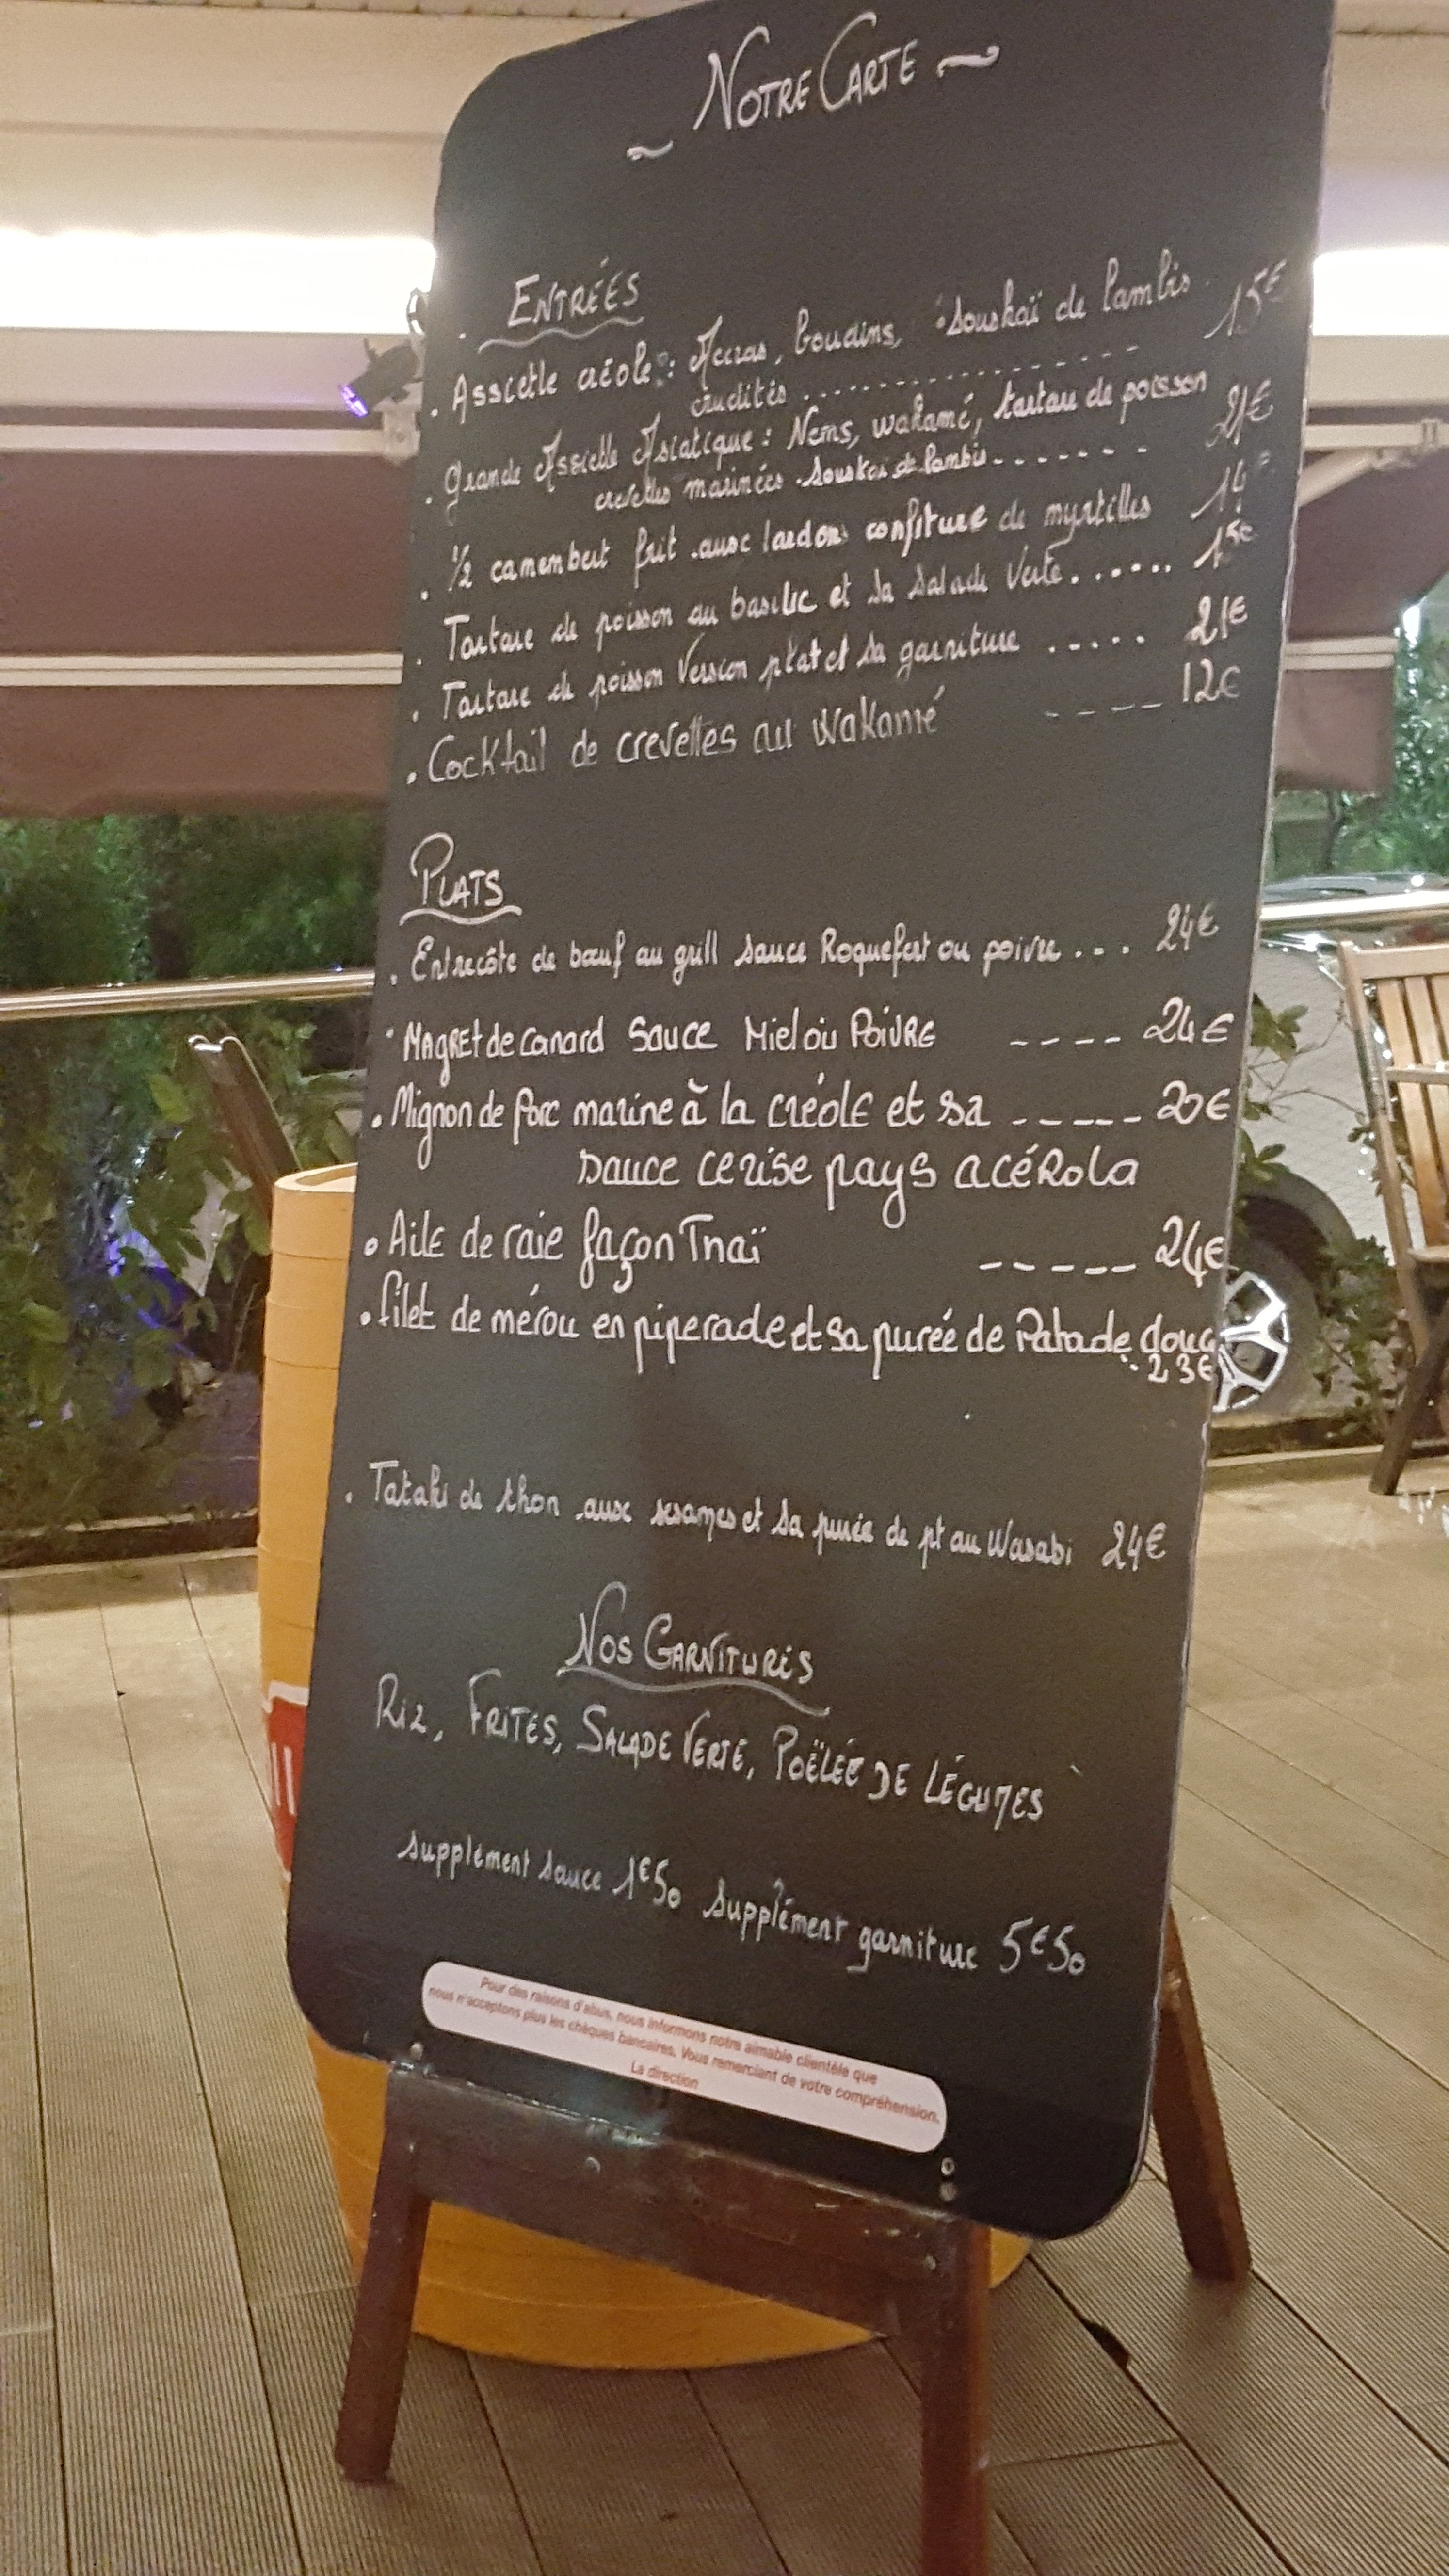 NOTRE CARTE
ENTRÉES
. Assiette créole : Accras, boudins, Souskaï de lambis 15€
crudités ..................
. Grande Assiette Asiatique : Nems, wakamé, tartare de poisson 21€
crevettes marinées Souskaï de lambis.......
. 1/2 camembert frit aux lardons confiture de myrtilles 14€
. Tartare de poisson au basilic et sa salade verte...... 15€
. Tartare de poisson version plat et sa garniture ..... 21€
. Cocktail de crevettes au wakamé ---- 12€
PLATS
. Entrecôte de bœuf au grill sauce Roquefort ou poivre... 24€
. MAGRET de canard Sauce Miel ou POIVRE ---- 24€
. Mignon de porc marine à la créole et sa ----- 20€
sauce cerise pays acérola
. Aile de raie façon Thaï ----- 24€
. filet de mérou en piperade et sa purée de Patade douc
..23€
. Tataki de thon aux sesames et sa purée de pt au Wasabi 24€
NOS GARNITURES
RIZ, FRITES, SALADE VERTE, POËLÉE DE LÉGUMES
supplément sauce 1€50 supplément garniture 5€50
Pour des raisons d'abus, nous informons notre aimable clientèle que
nous n'acceptons plus les chèques bancaires. Vous remerciant de votre compréhension.
La direction